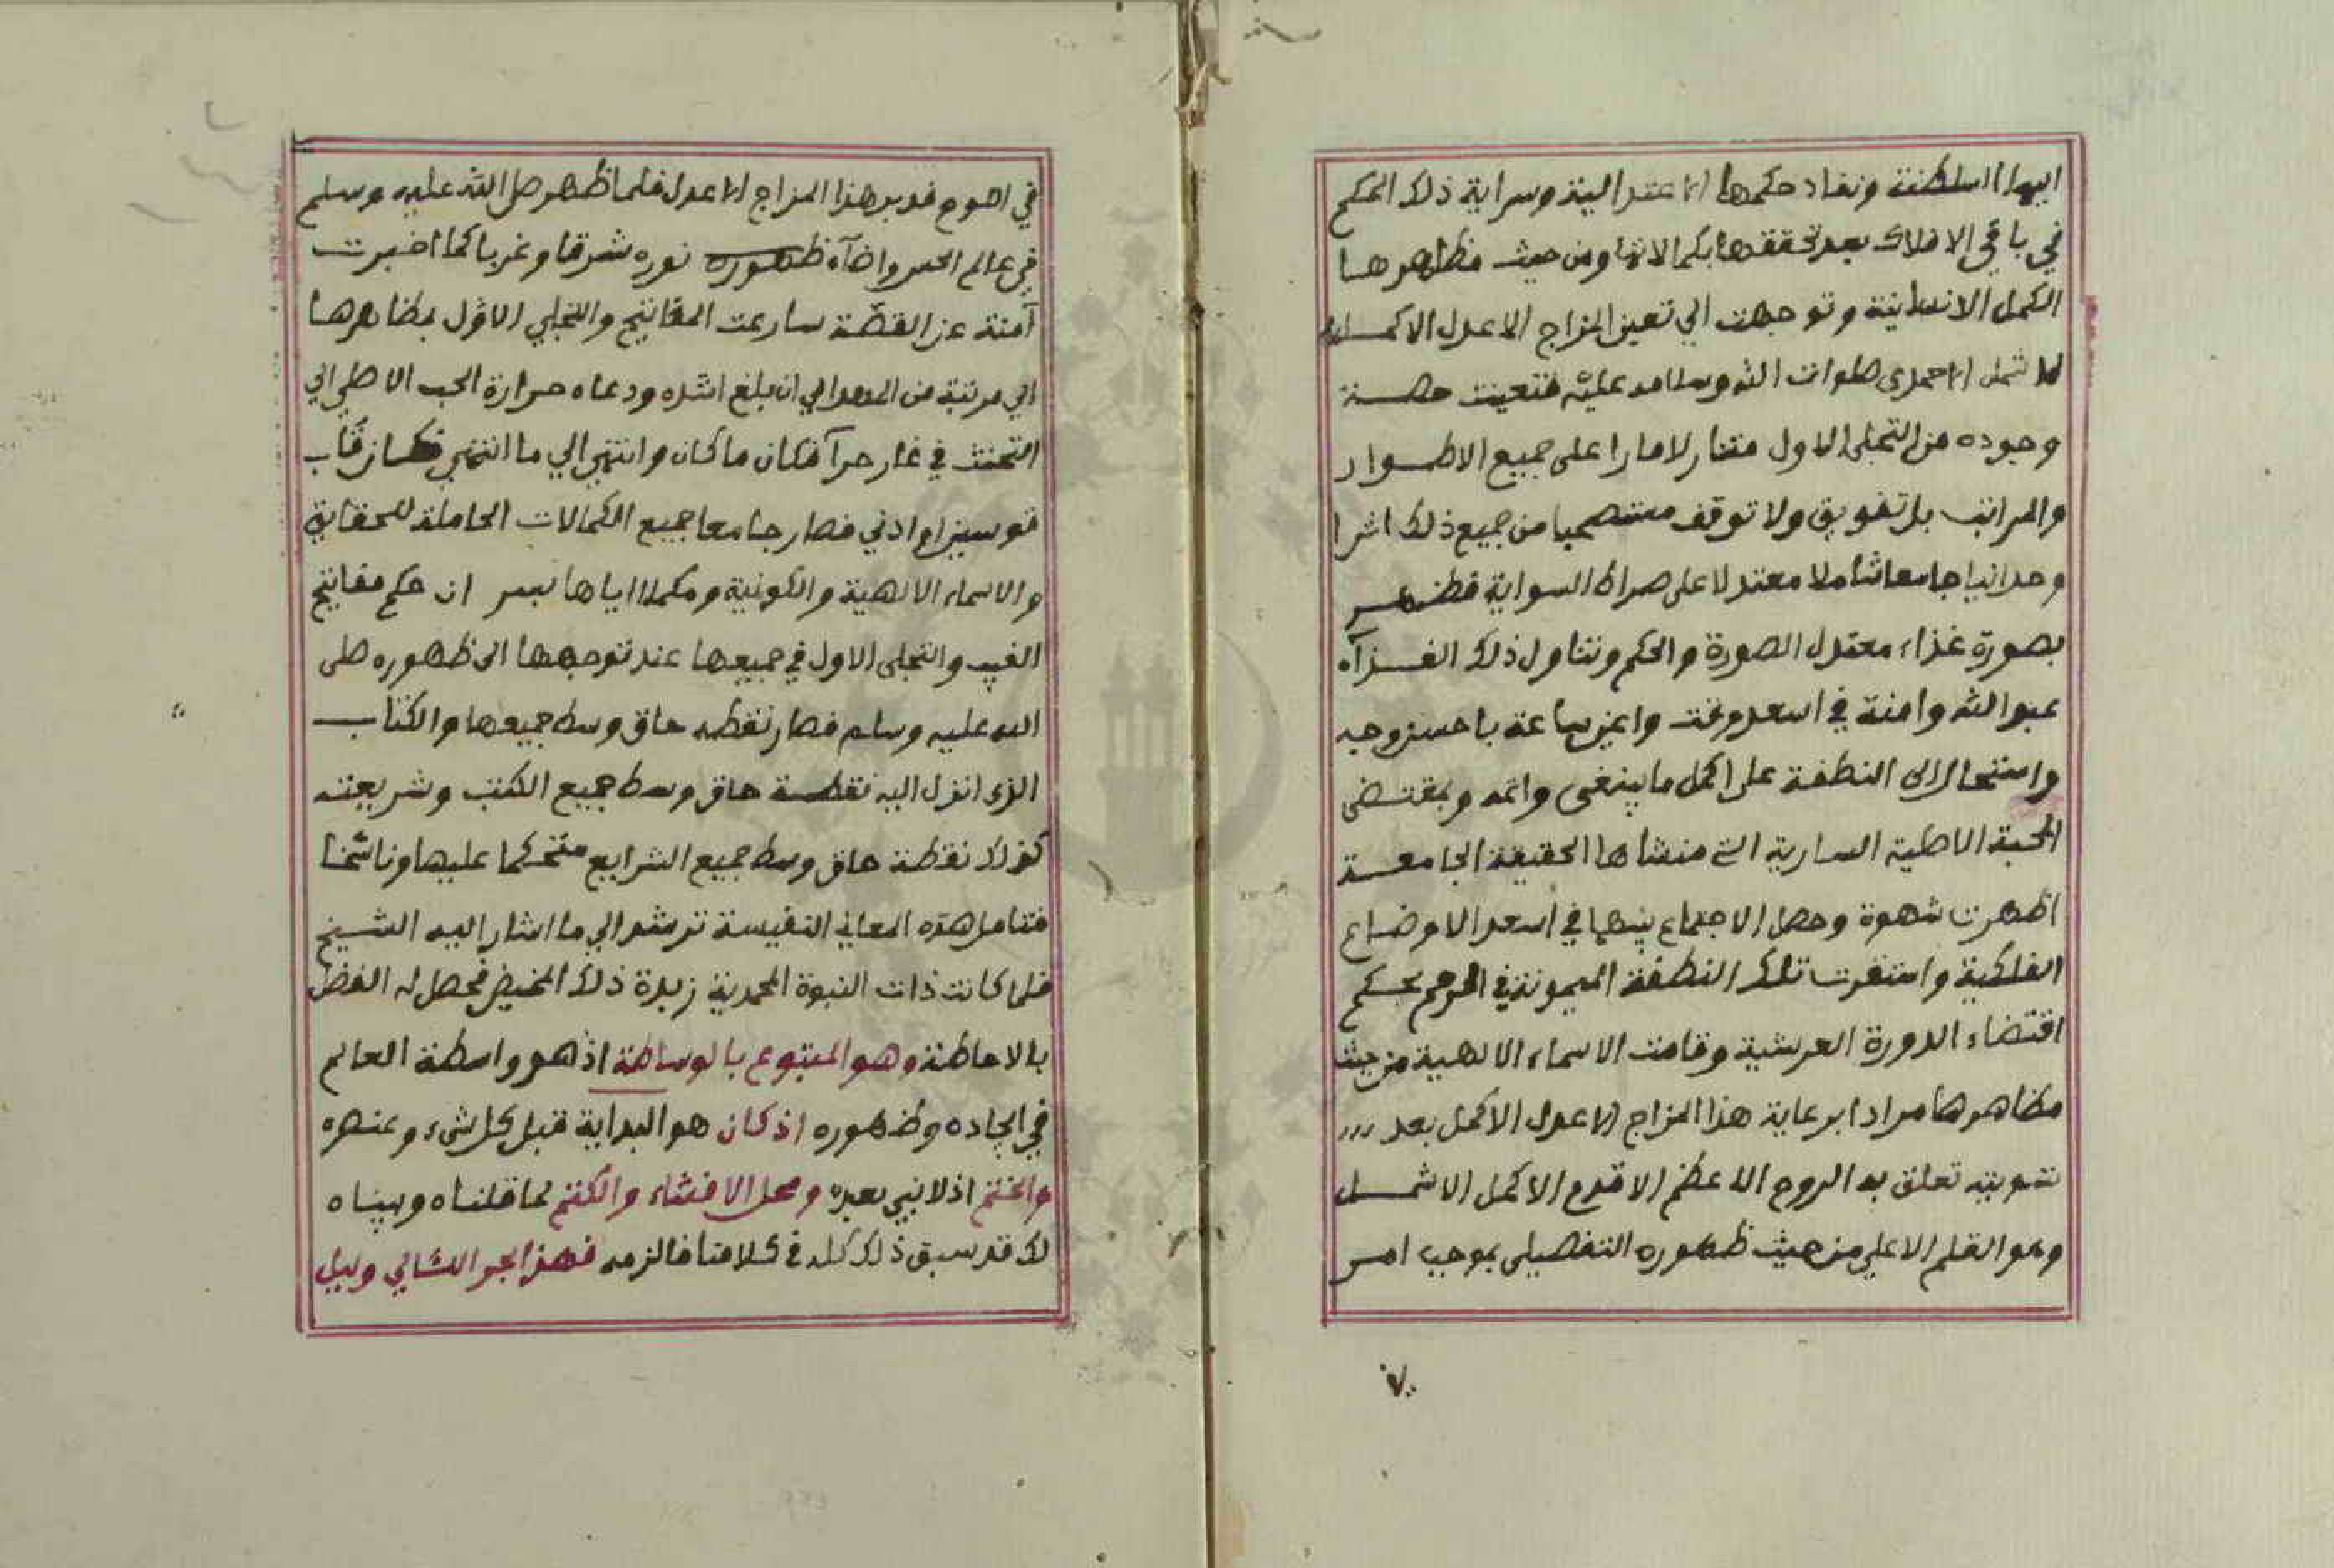 اليها السلطنة ونفاد حكمها الاعتدالية وسراية ذلك الحكم
في باقي الافلاك بعد تحققها بكمالاتها ومن حيث مظاهرها
الكمل الانسانية وتوجهت الي تعين المزاج الاعدل الاكمل
الاشمل الاحمدى صلوات الله وسلامه عليه فتعينت حصة
وجوده من التجلى الاول متنازلا مارا على جميع الاطوار
والمراتب بل تفويق ولا توقف مستصحبا من جميع ذلك اثرا
وحدانيا جامعا شاملا معتدلا على صراط السواية فظهر
بصورة غذاء معتدل الصورة والحكم وتناول ذلك الغذآء
عبد الله وامنة في اسعد وقت وايمن ساعة باحسن وجه
واستحال الى النطفة على اكمل ما ينبغى واتمه وبمقتضى
المحبة الاصلية السارية التى منشاها الحقيقة الجامعة
اظهرت شهوة وحصل الاجتماع بينهما في اسعد الاوضاع
الفلكية واستقرت تلك النطفة الميمونة في الرحم بحكم
اقتضاء الدورة العرشية وقامت الاسماء الالهية من حيث
مظاهرها مرادا برعاية هذا المزاج الاعدل الاكمل بعد
تسويته تعلق به الروح الاعظم الاقدم الاكمل الاشمل
وهو القلم الاعلى من حيث ظهوره التفصيلى بموجب امر
في اهوم فدبر هذا المزاج الاعدل فلما ظهر صلى الله عليه وسلم
في عالم الحس واضآء ظهوره نوره شرقا وغربا كما اخبرت
آمنة عن القصّة سارعت المفاتيح والتجلي الاوّل بمظاهرها
الي مرتبة من المهد الي ان بلغ اشده ودعاه حرارة الحب الاصلي الي
التحنث في غار حرآ فكان ما كان وانتهى الي ما انتهى فكان قاب
قوسين او ادني فصار جامعا جميع الكمالات الحاملة للحقاية
والاسماء الالهية والكونية ومكملا اياها بسر ان حكم مفاتيح
الغيب والتجلى الاول في جميعها عند توجهها الى ظهوره صلى
الله عليه وسلم فصار نقطه حاق وسط جميعها والكتاب
الذى انزل اليه نقطة حاق وسط جميع الكتب وشريعته
كذلك نقطة حاق وسط جميع الشرايع متحكما عليها وناسخا
فتامل هذه المعاني النفيسة ترشد الي ما اشار اليه الشيخ
فلما كانت ذات النبوة المحمدية زبدة ذلك المخيض فحصل له الفضل
بالاحاطة وهو المتبوع بالوساطة اذ هو واسطة العالم
في ايجاده وظهوره اذ كان هو البداية قبل كل شىء وعنصره
والختم اذ لا نبي بعده ومحل الافشاء والكتم لما قلناه وبيناه
لك قد سبق ذلك كله في كلامنا فالزمه فهذا بحر اللئالي وليل